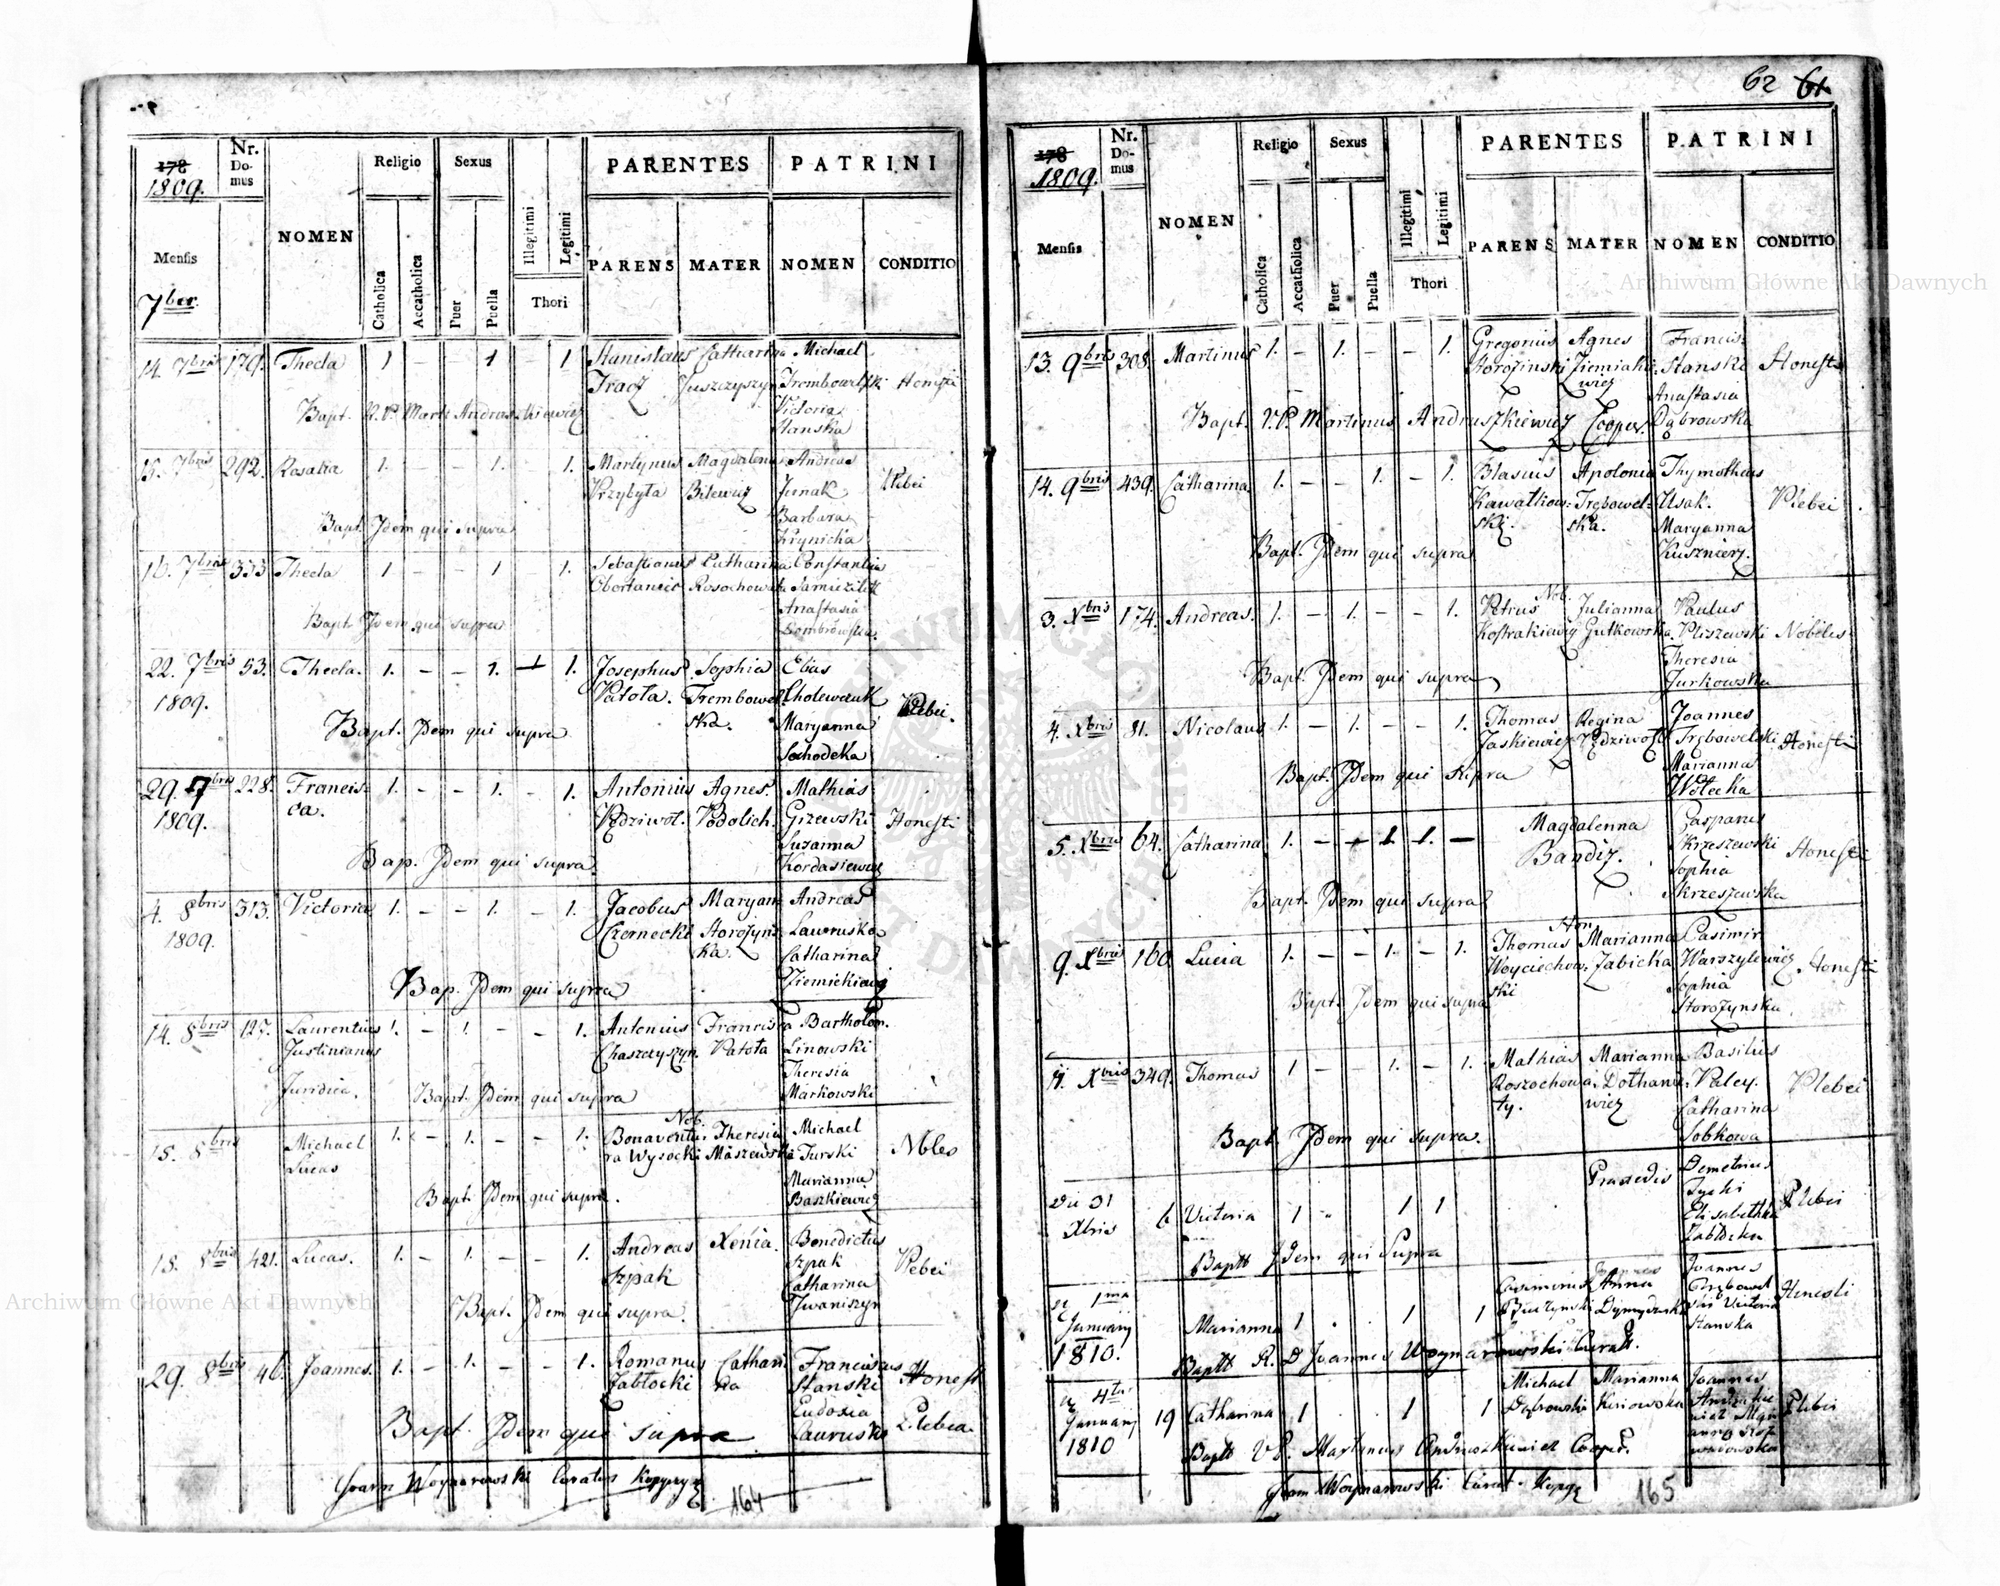 62 61
178
1809.
Nr. Domus
NOMEN
Religio
Sexus
Illegitimi
Legitimi
PARENTES
PATRINI
Mensis
7ber
Catholica
Accatholica
Puer
Puella
Thori
PARENS
MATER
NOMEN
CONDITIO
14. 7bris 179. Thecla 1 – – 1 – 1 Stanislaus Catharina Michael
Tracz Juszczyszyn Trembowelski Honesti
Bapt. R.P. Mart: Andruszkiewicz Victoria
Stanska
15. 7bris 292. Rosalia 1. – – 1. – 1. Martynus Magdalena Andreas
Przybyła Bilewicz Junak Plebei
Barbara
Bapt. Jdem qui supra Krynicka
16. 7bris 333 Thecla 1 – – 1 – 1. Sebastianus Catharina Constantin
Anastasia
Bapt. Jdem qui supra Dombrowska
22. 7bris 53. Thecla. 1. – – 1. – 1. Josephus Sophia Elias
1809. Patoła. Trembowel Cholewczuk Plebei.
ska. Maryanna
Bapt. Jdem qui supra Sochodeka
29. 7bris 228. Francis- 1. – – 1. – 1. Antonius Agnes Mathias
1809. ca. Pędziwol. Podolich. Grzewski Honesti
Susanna
Bap. Jdem qui supra. Kordasiewicz
4. 8bris 313. Victoria 1. – – 1. – 1. Jacobus Maryan Andreas
1809. Czernecki Storożyns Lawrusko
ka. Catharina
Bap. Jdem qui supra Ziemiekiewicz
14. 8bris 127. Laurentius 1. – 1. – – 1. Antonius Francisca Bartholom.
Justinianus Chaszczyszyn. Patoła Linowski
Theresia
Juridica. Bapt. Jdem qui supra Markowski
Nob.
15. 8bris Michael 1. – 1. – – 1. Bonaventu- Theresia Michael
Lucas ra Wysocki Maszewska Turski Nobles
Marianna
Bapt. Jdem qui supra. Baszkiewicz
18. 8bris 421. Lucas. 1. – 1. – – 1. Andreas Xenia. Benedictus
Szpak Szpak Plebei
Catharina
Bapt. Jdem qui supra. Iwaniszyn
29. 8bris 46. Joannes. 1. – 1. – – 1. Romanus Cathari Franciscus Honest
Jabłocki na Stanski
Eudoxia
Bapt. Jdem qui supra Lawrusko Plebea.
Joann Woynarowski Curatus
164
178
1809.
Nr. Domus
NOMEN
Religio
Sexus
Illegitimi
Legitimi
PARENTES
PATRINI
Mensis
Catholica
Accatholica
Puer
Puella
Thori
PARENS
MATER
NOMEN
CONDITIO
13. 9bris 308. Martinus 1. – 1. – – 1. Gregorius Agnes Francis:
Storożinski Ziemiakie- Stanski Honesti
wicz Anastasia
Bapt. V.P. Martinus Andruszkiewicz Cooper. Dąbrowska
14. 9bris 439. Catharina 1. – – 1. – 1. Blasius Apolonia Thymotheus
Kawałkow- Trębowel- Usak. Plebei
ski. ska. Maryanna
Bapt. Jdem qui supra Kusznierz.
Nob.
3. Xbris 174. Andreas. 1. – 1. – – 1. Petrus Julianna Paulus
Kostrakiewicz Gutkowska. Pliszewski Nobeles
Theresia
Bapt. Jdem qui supra Jurkowska
4. Xbris 81. Nicolaus 1. – 1. – – 1. Thomas Regina Joannes
Jaskiewicz Pędziwol Trębowelski Honesti
Marianna
Bapt. Jdem qui supra Wołecka
5. Xbris 64. Catharina 1. – – 1. 1. – Magdalenna Gasparus
Bandiz. Skrzeszewski Honesti
Sophia
Bapt. Jdem qui supra Skrzeszewska
Hon.
9. Xbris 160. Lucia 1. – – 1. – 1. Thomas Marianna Casimir
Woyciechow- Zabicka Warszylewicz Honesti
ski Sophia
Bapt. Jdem qui supra Storożynska.
11. Xbris 349. Thomas 1 – – 1. – 1. Mathias Marianna Basilius
Roszochowa- Dothanie- Paley. Plebei
ty. wicz Catharina
Bapt. Jdem qui supra. Sobkowa
Die 31 Praxedis Demetrius
Xbris 6 Victoria 1 1 1 Plebei
Elisabetha
Baptt Jdem qui Supra
1ma Casimirus Anna Joannes
January Marianna 1 . 1 1 Honesti
1810. Victoria
Baptt R. D Joannes Woynarowski Curatt. Stanska
4ta Michael Marianna Joannes
January 19 Catharina 1 1 1 Dąbrowski Plebei
1810 Baptt V P. Martinus Andruszkiewicz Cooper.
Joann Woynarowski Curat.
165
Archiwum Główne Akt Dawnych
Archiwum Główne Akt Dawnych
ARCHIWUM GŁÓWNE AKT DAWNYCH